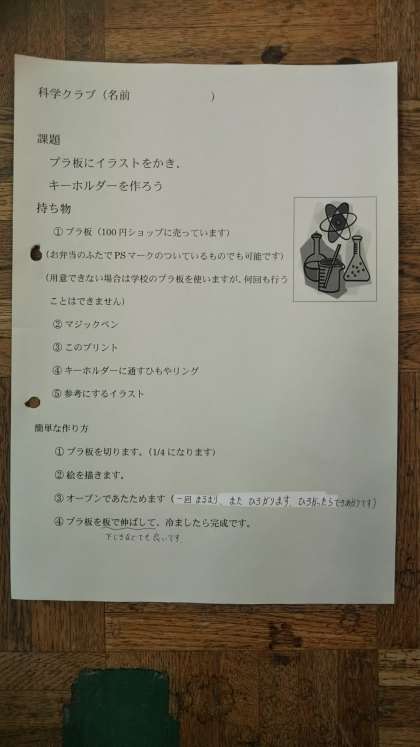 科学クラブ（名前　　　　　）
課題
プラ板にイラストをかき、
キーホルダーを作ろう
持ち物
①プラ板（100円ショップに売っています）
（お弁当のふたでPSマークのついているものでも可能です）
（用意できない場合は学校のプラ板を使いますが、何回も行う
ことはできません）
②マジックペン
③このプリント
④キーホルダーに通すひもやリング
⑤参考にするイラスト
簡単な作り方
①プラ板を切ります。（1/4になります）
②絵を描きます。
③オーブンであたためます（一回まるまり、また ひろがります。ひろがったらできあがりです）
④プラ板を板で伸ばして、冷ましたら完成です。
下じきなどでも良いです